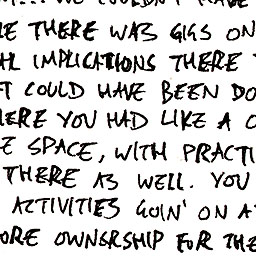 WE COULDN'T HAVE
THERE WAS GIGS ON
IMPLICATIONS THERE
COULD HAVE BEEN DO
HERE YOU HAD LIKE A C
E SPACE, WITH PRACTI
THERE AS WELL. YOU
ACTIVITIES GOIN' ON A
ORE OWNERSHIP FOR THE